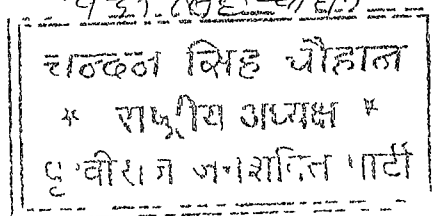 चन्दन सिंह चौहान
* राष्ट्रीय अध्यक्ष *
पृथ्वीराज जनशक्ति पार्टी